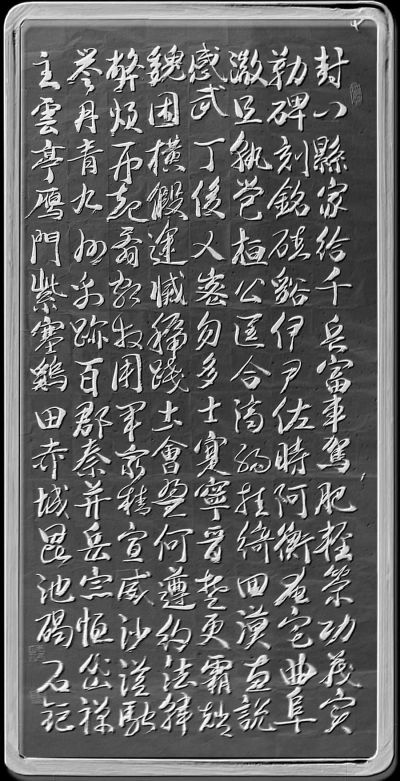 封八縣家給千兵富車駕肥輕策功茂實
勒碑刻銘磻谿伊尹佐時阿衡奄宅曲阜
微旦孰營桓公匡合濟弱扶綺回漢惠說
感武丁俊乂密勿多士寔寧晉楚更霸趙
魏困橫假途滅虢踐土會盟何遵約法韓
弊煩刑起翦頗牧用軍最精宣威沙漠馳
譽丹青九州禹跡百郡秦并岳宗恒岱禪
主雲亭鴈門紫塞鷄田赤城昆池碣石鉅